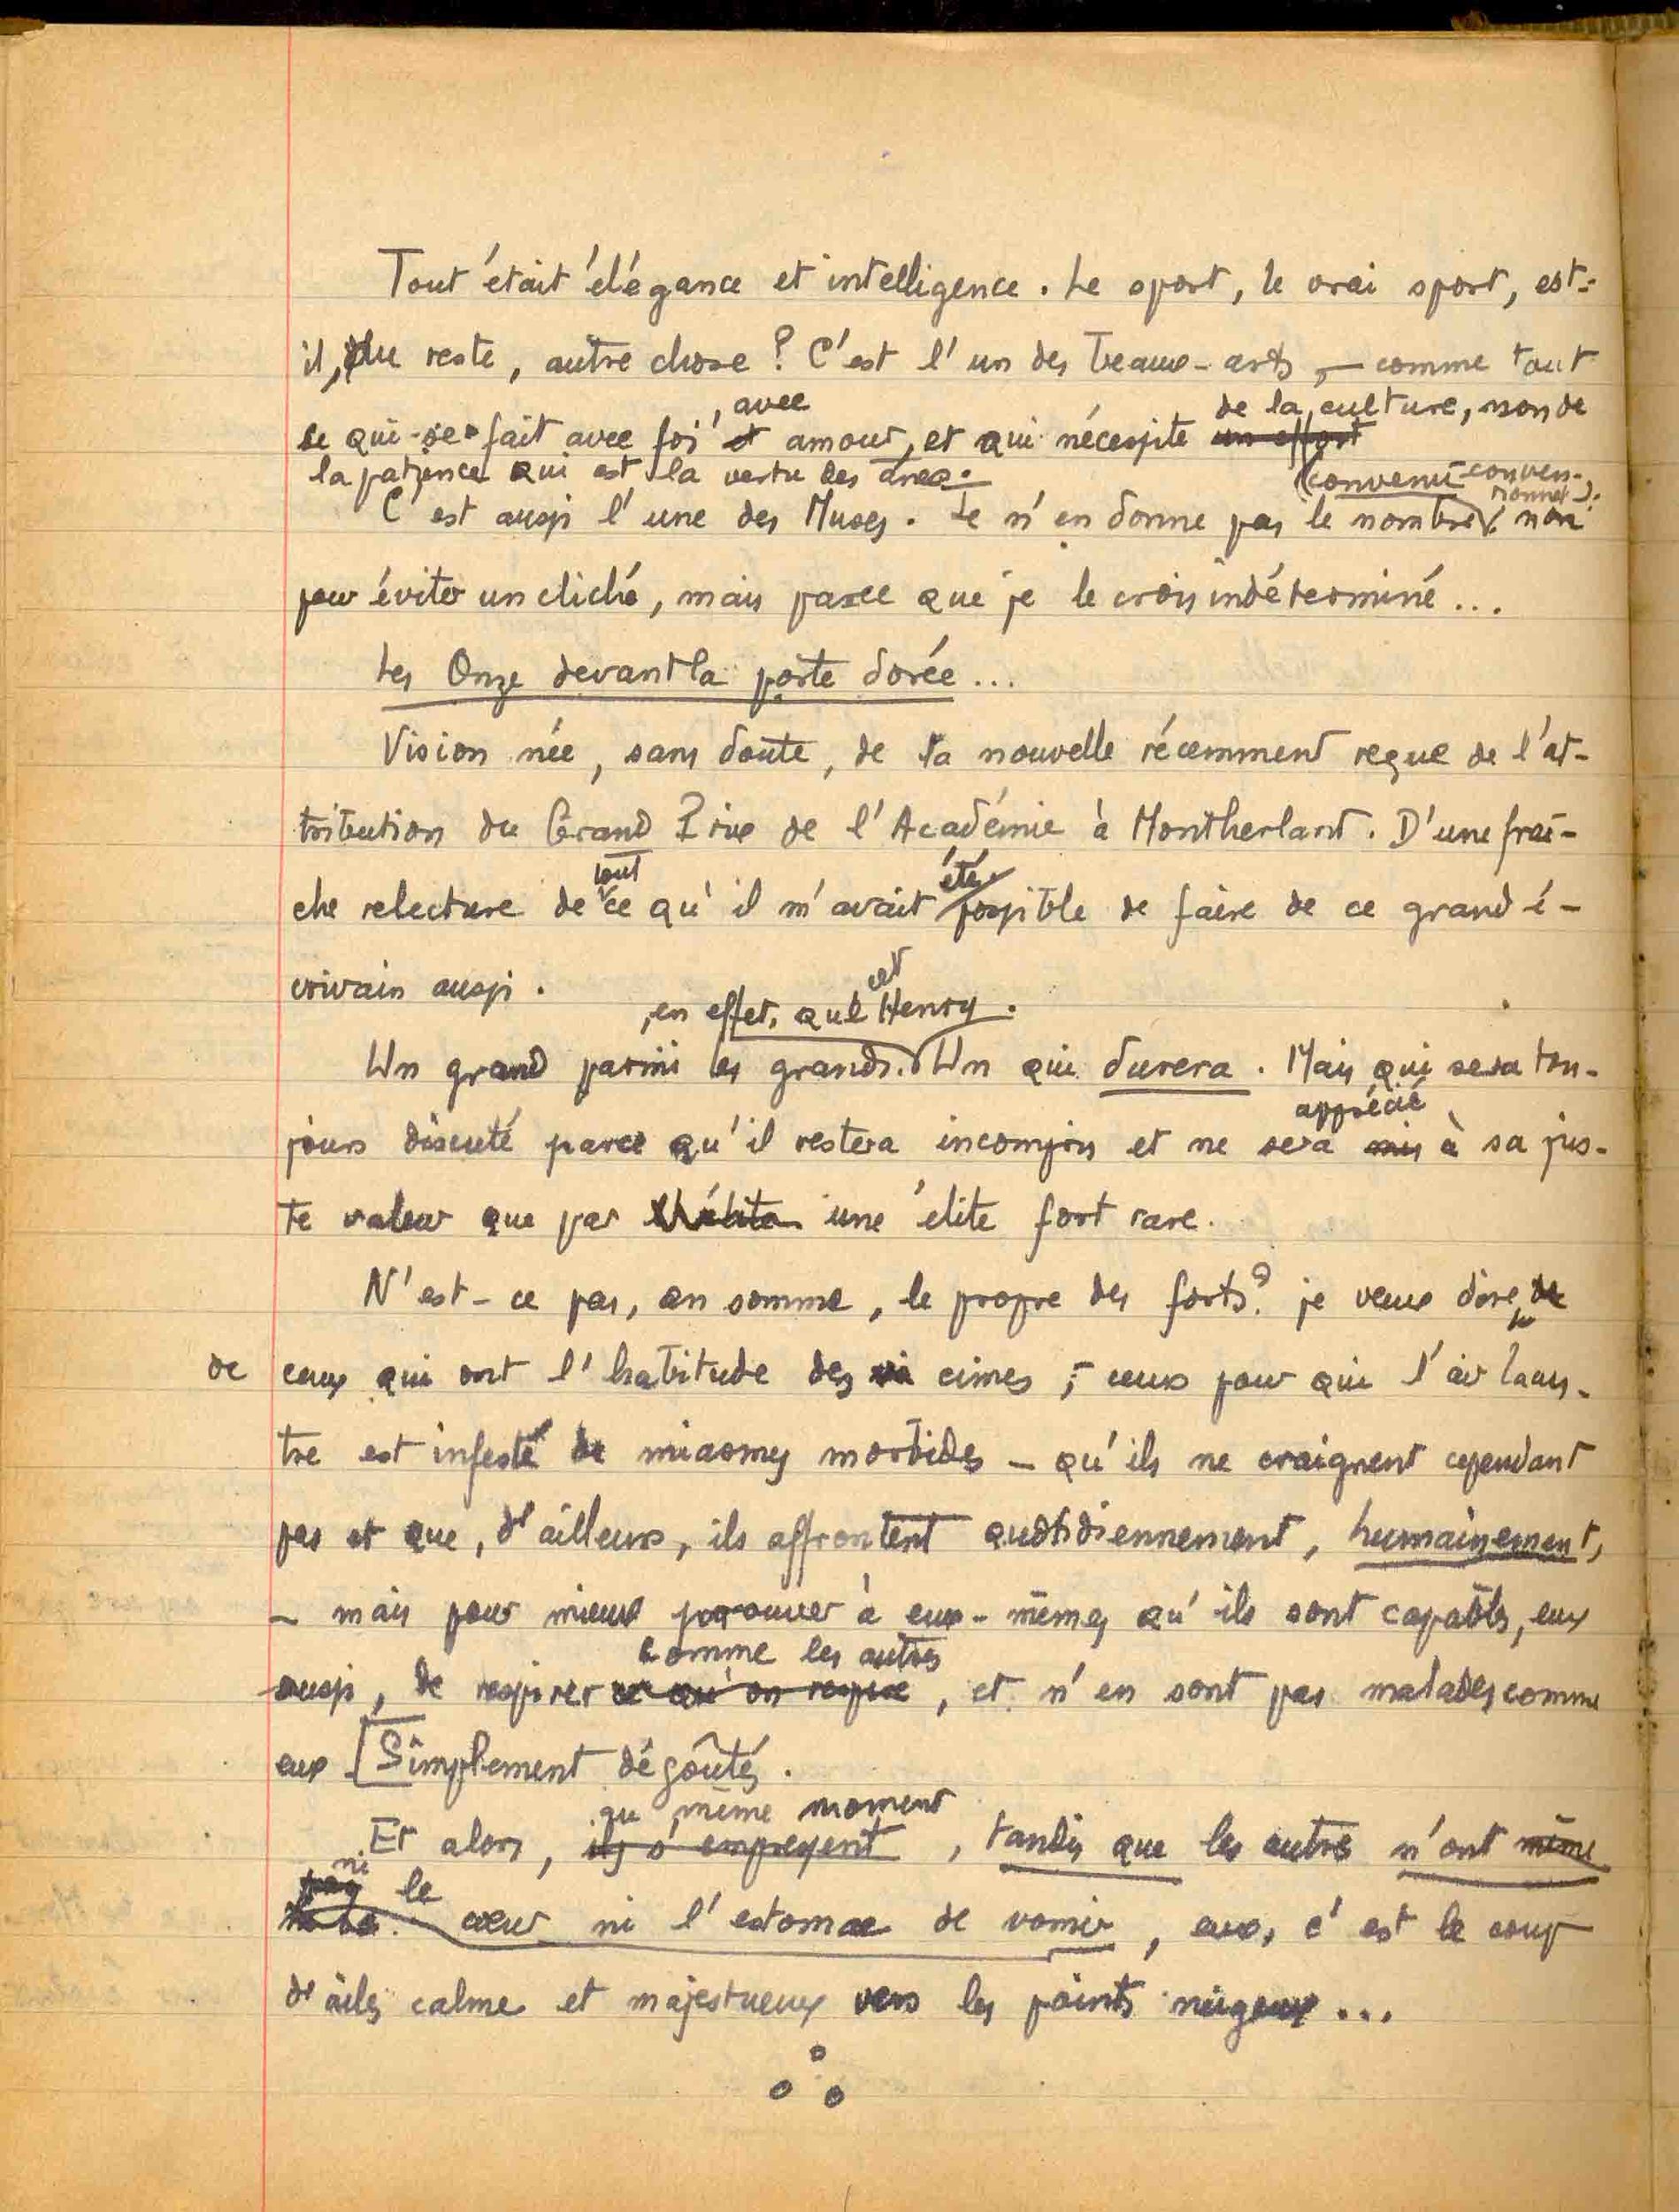 Tout était élégance et intelligence. Le sport, le vrai sport, est-
il, du reste, autre chose ? C'est l'un des beaux-arts, — comme tout
, avec
de la culture, non de
ce qui se fait avec foi et amour, et qui nécessite un effort
la patience qui est la vertu des ânes.
(convenu-conven-
tionnel).
C'est aussi l'une des Muses. Je n'en donne pas le nombre, non
pour éviter un cliché, mais parce que je le crois indéterminé...
Les Onze devant la porte dorée...
Vision née, sans doute, de la nouvelle récemment reçue de l'at-
tribution du Grand Prix de l'Académie à Montherlant. D'une fraî-
tout
été
che relecture de ce qu'il m'avait possible de faire de ce grand é-
crivain aussi.
cet
, en effet, que Henry.
Un grand parmi les grands. Un qui durera. Mais qui sera tou-
apprécié
jours discuté parce qu'il restera incompris et ne sera mis à sa jus-
te valeur que par l'élite une élite fort rare.
N'est-ce pas, en somme, le propre des forts ? je veux dire, de
de ceux qui ont l'habitude des cimes, - ceux pour qui l'air
tre est infesté de miasmes morbides — qu'ils ne craignent cependant
pas et que, d'ailleurs, ils affrontent quotidiennement, humainement,
— mais pour mieux prouver à eux-mêmes qu'ils sont capables, eux
comme les autres
aussi, de respirer ce qu'on respire, et n'en sont pas malades comme
eux [Simplement dégoûtés.
au même moment
Et alors, ils s'empressent, tandis que les autres n'ont même
ni
pas le
cœur ni l'estomac de vomir, eux, c'est le coup
d'ailes calme et majestueux vers les points neigeux...